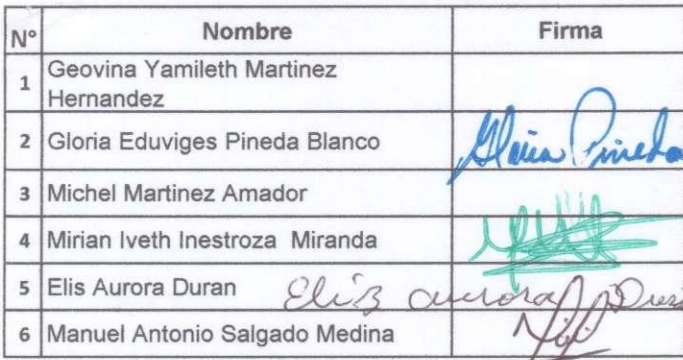 N° Nombre Firma
1 Geovina Yamileth Martinez
Hernandez
2 Gloria Eduviges Pineda Blanco Gloria Pineda
3 Michel Martinez Amador
4 Mirian Iveth Inestroza Miranda
5 Elis Aurora Duran Elis aurora
6 Manuel Antonio Salgado Medina